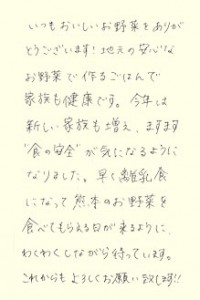 いつもおいしいお野菜をありが
とうございます!地元の安心な
お野菜で作るごはんで
家族も健康です。今年は
新しい家族も増え、ますます
"食の安全"が気になるように
なりました。早く離乳食
になって熊本のお野菜を
食べてもらえる日が来るように、
わくわくしながら待っています。
これからもよろしくお願い致します!!